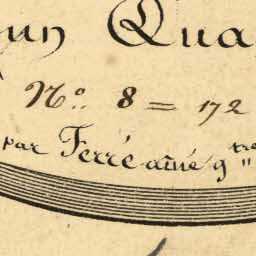 un Qua
No. 8 = 172
par Ferré aîné gtre "